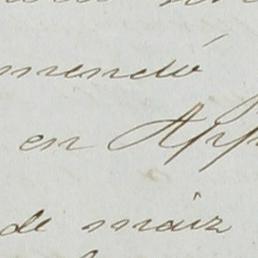 mendó
en App
de maiz